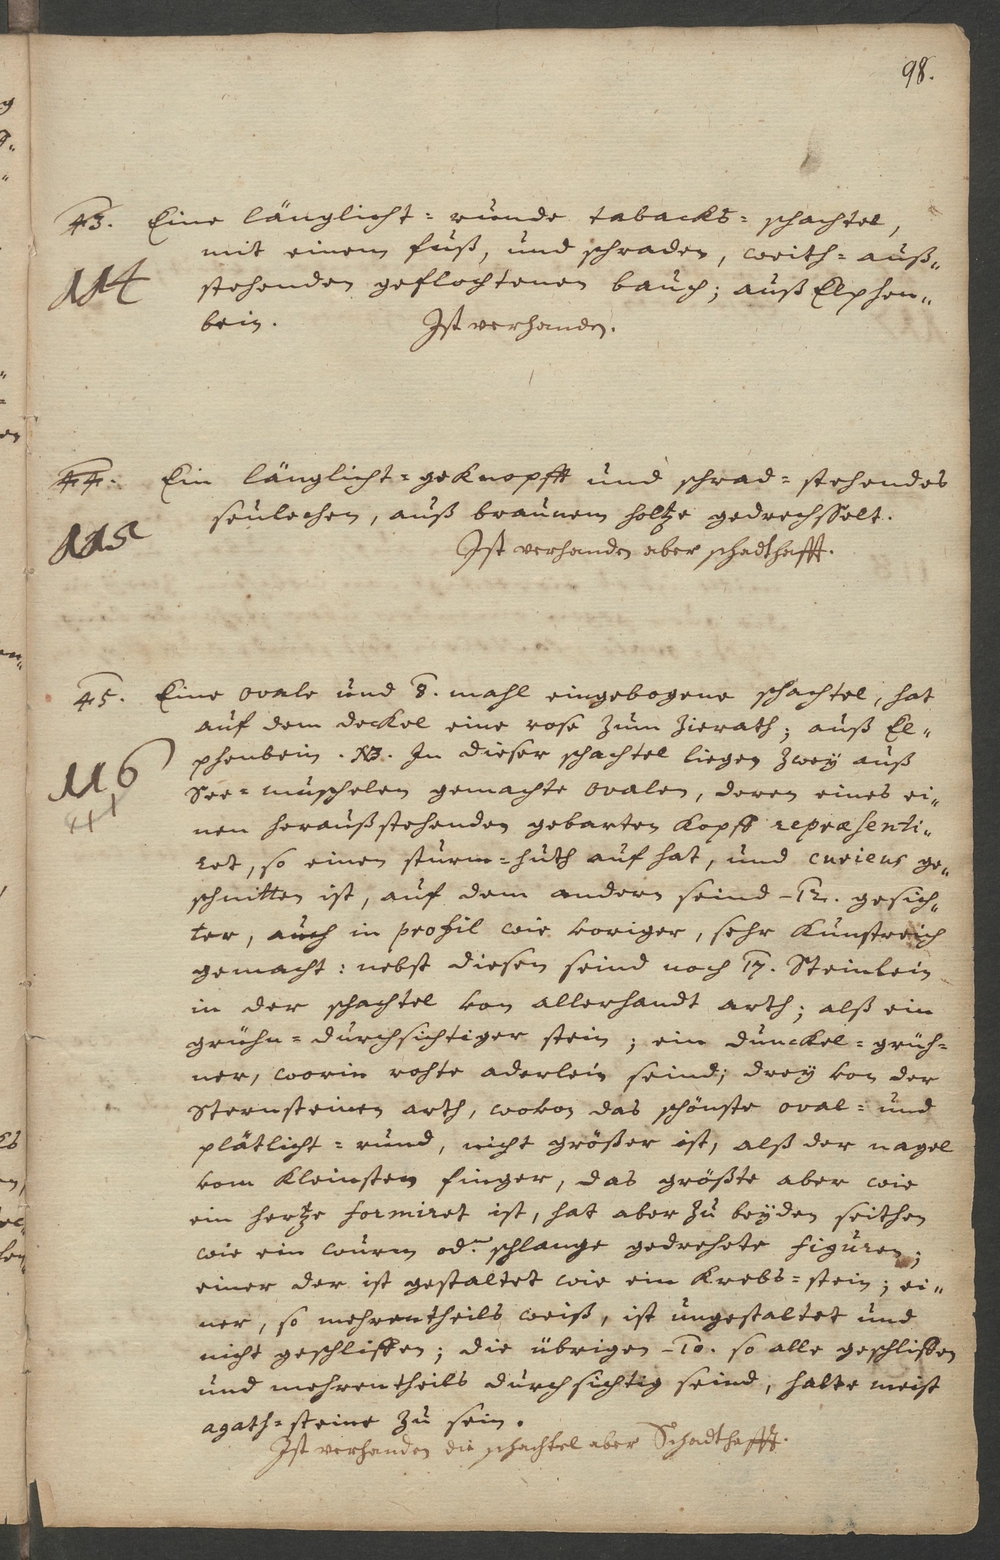 98.
43. Eine länglicht= runde tabacks= schachtel,
mit einem fuß, und schraden, weith= auß„
114
stehenden geflochtenen bauch; auß Elphen„
bein. Ist verhanden.
44. Ein länglicht= geknopfft und schrad= stehendes
seülechen, auß braunem holtze gedrechsselt.
115
Ist verhanden aber schadthafft.
45. Eine ovale und 8. mahl eingebogene schachtel, hat
auf dem deckel eine rose zum zierath; auß El„
phenbein. NB. In dieser schachtel liegen zweÿ auß
116
See= muschelen gemachte ovalen, deren eines ei„
nen heraußstehenden gebarten kopff repræsenti„
ret, so einen sturm= huth auf hat, und curieus ge„
schnitten ist, auf dem andern seind 12. gesich„
ter, auch in profil wie voriger, sehr kunstreich
gemacht: nebst diesen seind noch 17. Steinlein
in der schachtel von allerhandt arth; alß ein
grühn= durchsichtiger stein; ein dunckel= grüh=
ner, worin rohte aderlein seind; dreÿ von der
Sternsteinen arth, wovon das schönste oval= und
plätlicht= rund, nicht größer ist, alß der nagel
vom kleinsten finger, das größte aber wie
ein hertze formiret ist, hat aber zu beÿden seithen
wie ein wurm od. schlange gedrehete figuren;
einer der ist gestaltet wie ein Krebs= stein; ei„
ner, so mehrentheils weiß, ist ungestaltet und
nicht geschliffen; die übrigen 10. so alle geschliffen
und mehrentheils durchsichtig seind, halte meist
agath= steine zu sein.
Ist verhanden die schachtel aber Schadthafft.